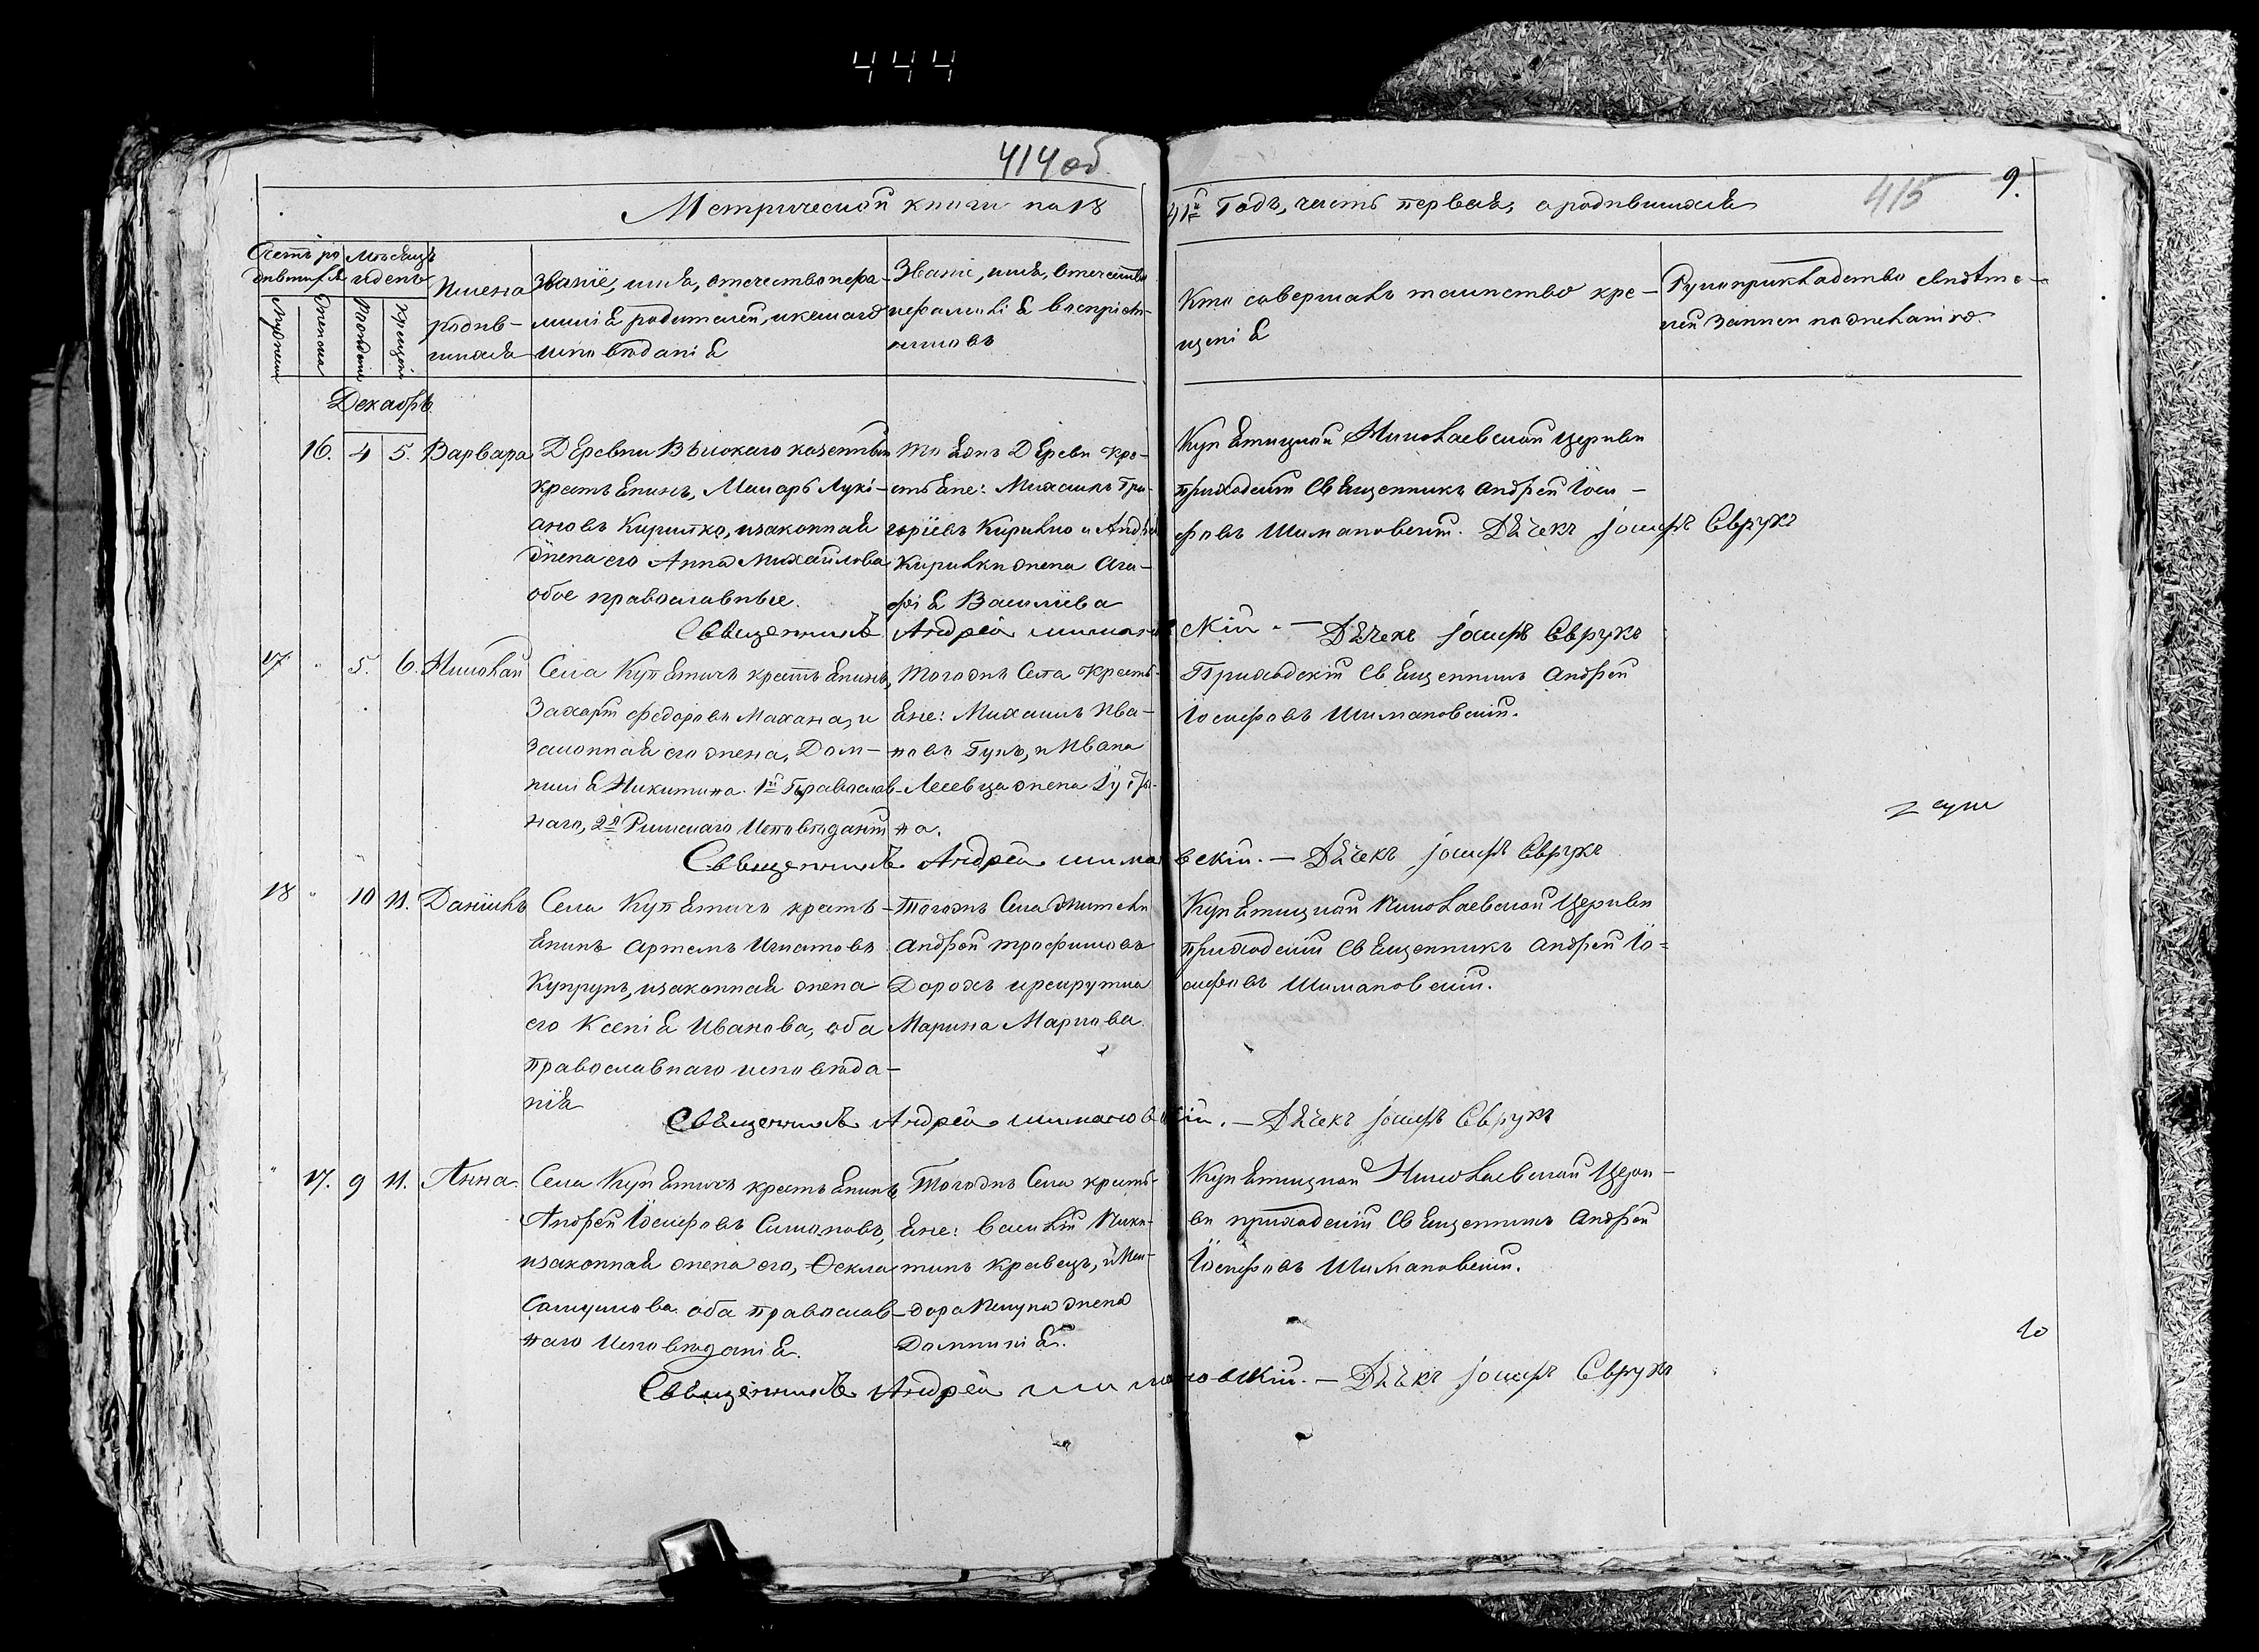 444
414 об
415
9.
Метрической книги на 18
41й Годъ, часть первая, о родившихся
Счетъ ро
дившихся
Мѣсяцъ
и день
Мужеска
Женска
Рожденія
Крещенія
Имена
родив-
шихся
Званіе, имя, отечество и фа-
миліа родителей, и какаго
исповѣданія
Званіе, имя, отечество
и фамиліа воспріем-
никовъ
Кто совершалъ таинство кре-
щенія
Рукоприкладство свидѣте-
лей записи по желанію.
Декабрь
16. 4 5. Варвара
Деревни Высокаго казенный
крестьянинъ, Макаръ Лукі-
ановъ Кирилко, и законная
жена его Анна Михайлова
обое православные.
тояжъ Деревн кре-
стьяне: Михаилъ Гри-
горіевъ Кирилко и Андрея
Кирилки жена Ага-
фія Василіева
Купятицкой Николаевской церкви
приходскій Священникъ Андрей Іоси-
фовъ Шимановскій. Дячекъ Іосифъ Свруxъ
Священникъ Андрей Шимановскій. — Дячекъ Іосифъ Свруxъ
17 " 5. 6. Николай
Села Купятичъ крестьянинъ,
Захарій Федоровъ Махана, и
Законная его жена, Дом-
никия Никитина. 1й Православ-
наго, 2я Римскаго Исповѣданія
Тогожъ Села кресть-
яне: Михаилъ Ива-
новъ Гукъ, и Ивана
Лесевца жена Іустн-
на.
Приходскій Священникъ Андрей
Іосифовъ Шимановскій.
Священникъ Андрей Шимановскій. — Дячекъ Іосифъ Свруxъ
18 " 10 11. Даніилъ
Села Купятичъ кресть-
янинъ Артемъ Игнатовъ
Купрунъ, и законная жена
его Ксенія Иванова, оба
православнаго исповѣда-
нія
Тогожъ Села жители
Андрей Трофимовъ
Дорохъ и рекрутка
Марина Маркова
Купятицкой Николаевской Церкви
приходскій Священникъ Андрей Іо-
сифовъ Шимановскій.
Священникъ Андрей Шимановскій. — Дячекъ Іосифъ Свруxъ
" 17. 9 11. Анна.
Села Купятичъ крестьянинъ
Андрей Іосифовъ Симоновъ,
и законная жена его, Ѳекла
Самуилова оба православ-
наго Исповѣданія.
Тогожъ Села кресть-
яне: Василій Ники-
тинъ Кравецъ, и
жена
Домникія.
Купятицкой Николаевской Церк-
ви приходскій Священникъ Андрей
Іосифовъ Шимановскій.
Священникъ Андрей Шимановскій. — Дячекъ Іосифъ Свруxъ